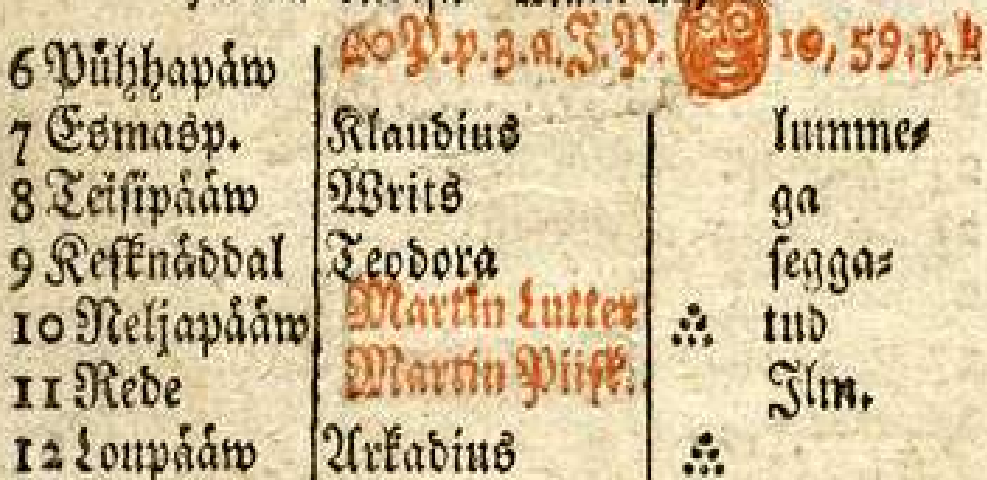 6 Pühhapääw 20 P. p. z. a. J. P. 10, 59, p. k
7 Esmasp. Klaudius lumme-
8 Teisipääw Writs ga
9 Kesknäddal Teodora segga-
10 Neljapääw Martin Lutter tud
11 Rede Martin Piisk. Ilm.
12 Loupääw Arkadius